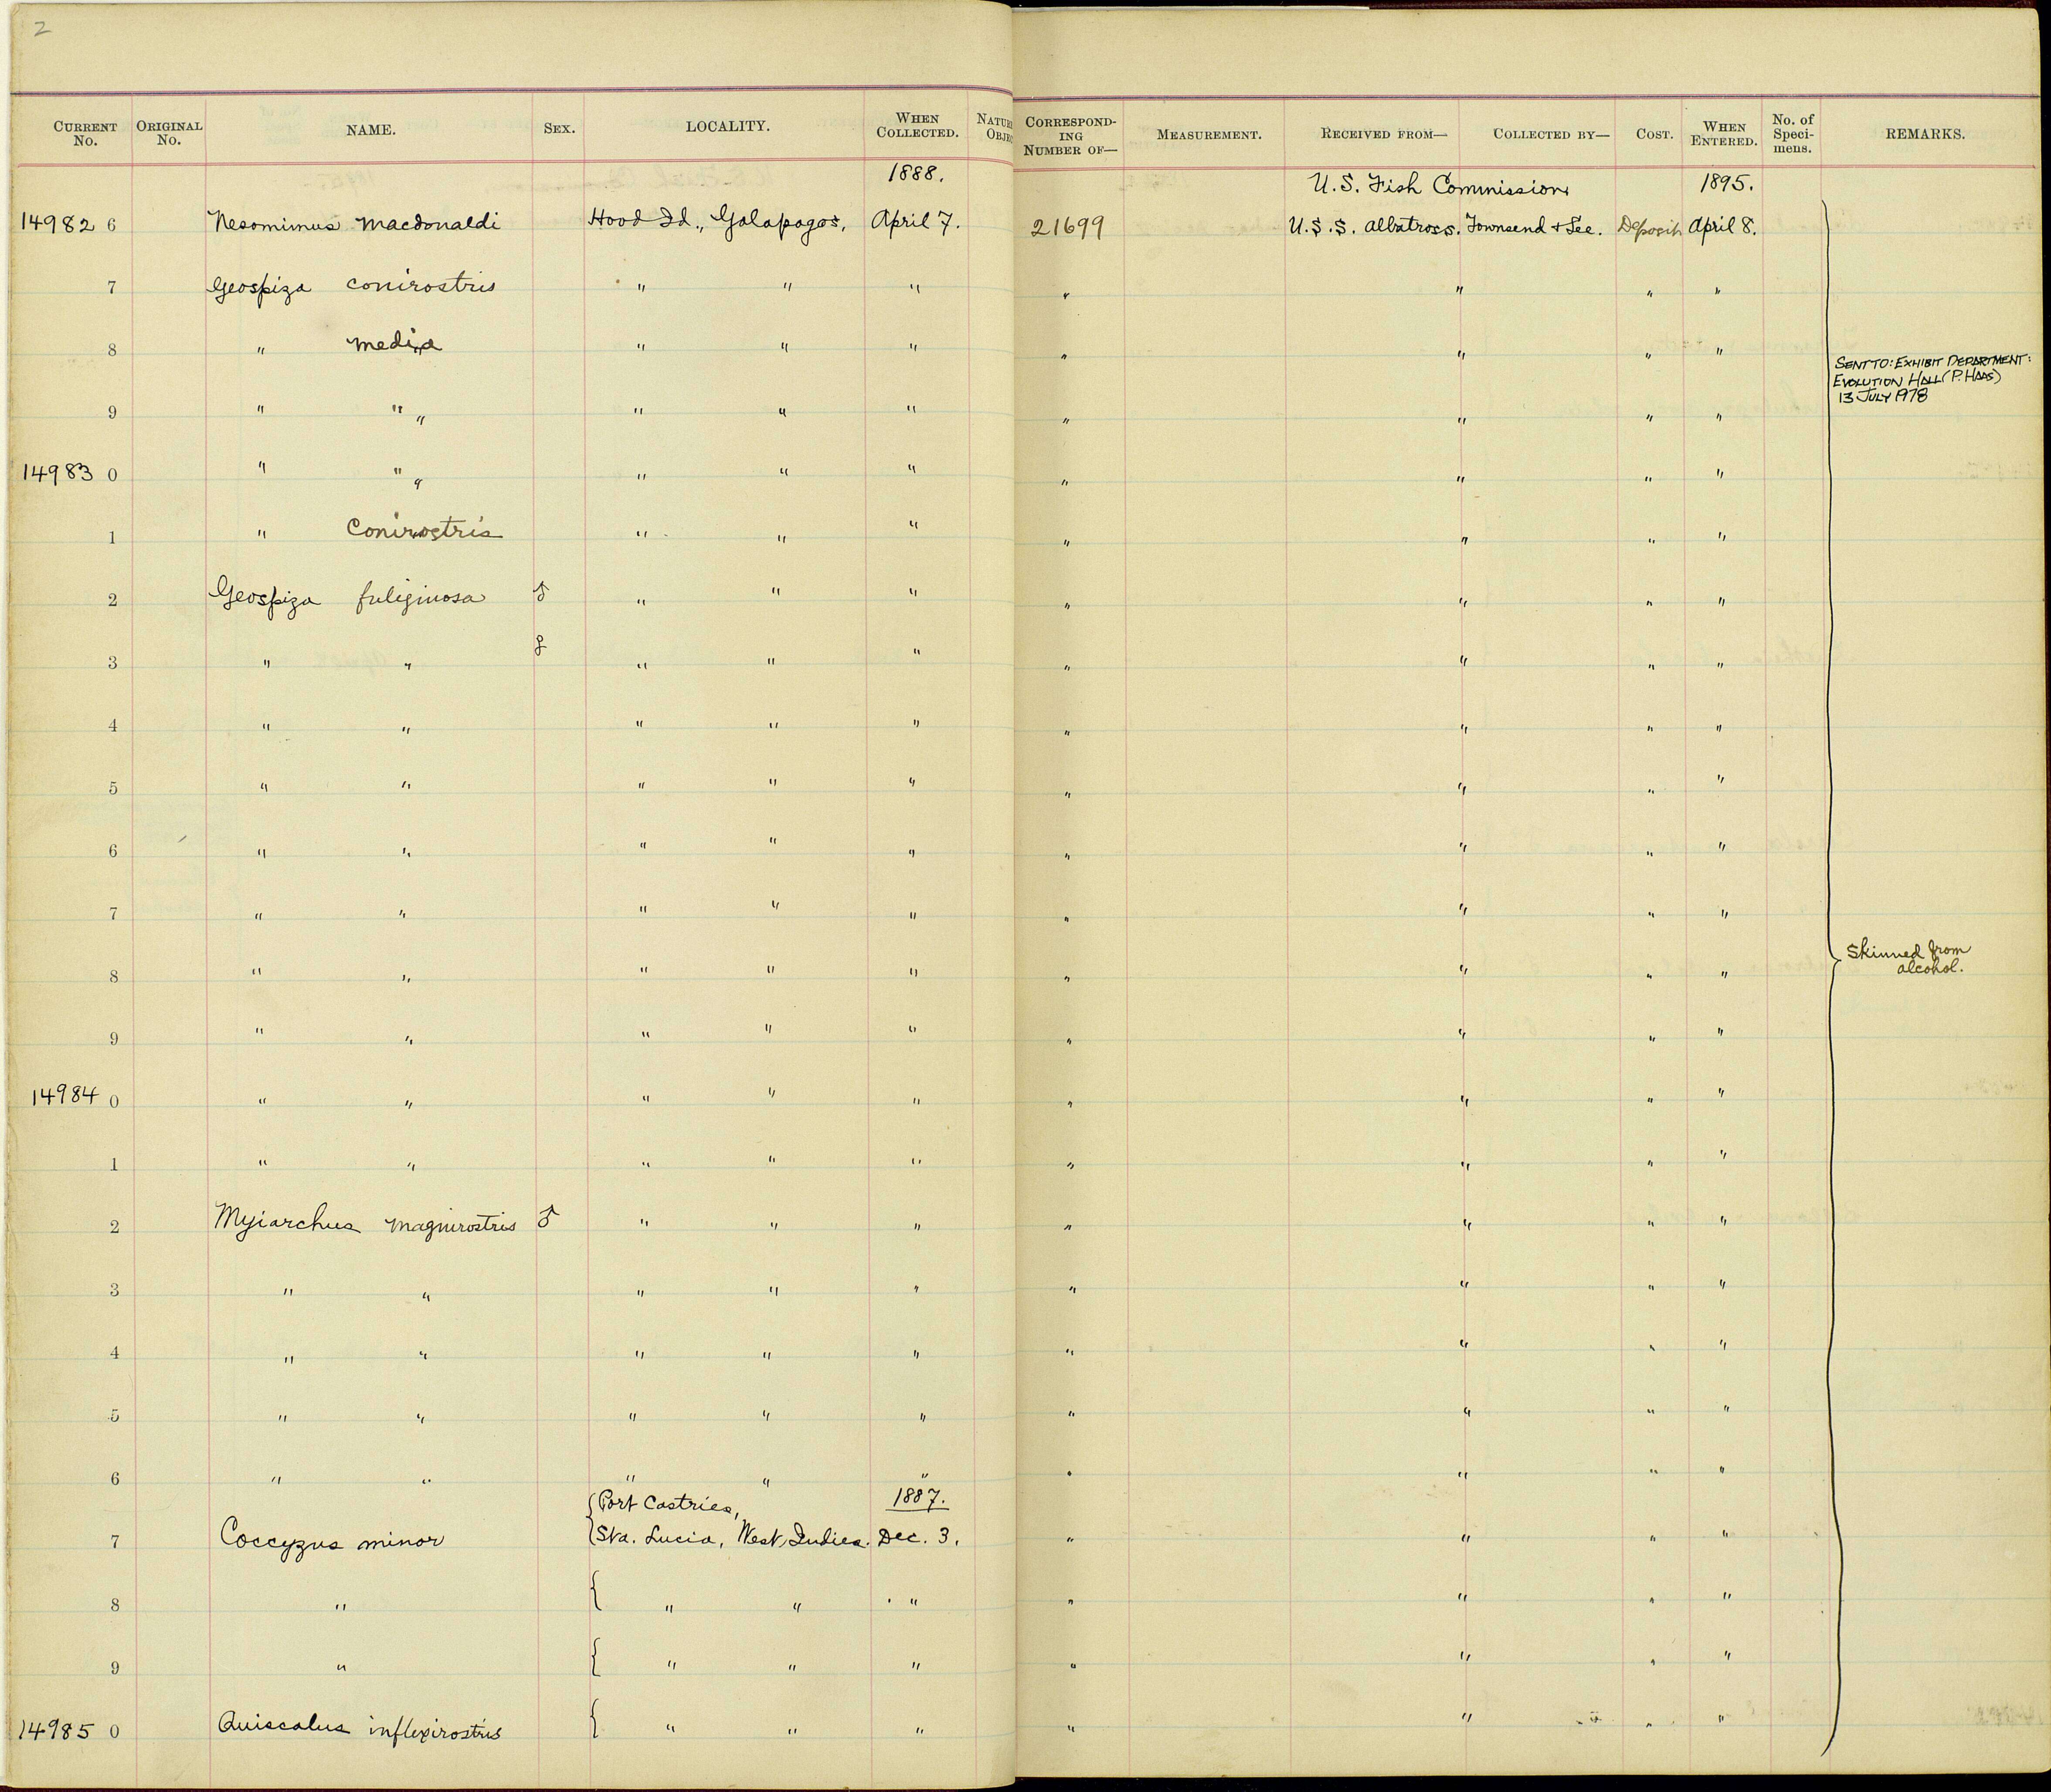 2
CURRENT No. ORIGINAL No. NAME. SEX. LOCALITY. WHEN COLLECTED. CORRESPONDING NUMBER OF— MEASUREMENT. RECEIVED FROM— COLLECTED BY— COST. WHEN ENTERED. No. of Specimens. REMARKS.
1888. U.S. Fish Commission 1895.
14982 6 Nesomimus macdonaldi Hood Id., Galapagos, April 7. 21699 U.S.S. Albatross. Townsend & Lee. Deposit April 8.
7 Geospiza conirostris " " " " " " "
8 " media " " " " " " "
SENT TO: EXHIBIT DEPARTMENT:
EVOLUTION HALL (P. HAAS)
13 JULY 1978
9 " " " " " " " " " "
14983 0 " " " " " " " " " "
1 " Conirostris " " " " " " "
2 Geospiza fuliginosa ♂ " " " " " " "
3 " " ♀ " " " " " " "
4 " " " " " " " " "
5 " " " " " " " " "
6 " " " " " " " " "
7 " " " " " " " " "
8 " " " " " " " " " Skinned from
alcohol.
9 " " " " " " " " "
14984 0 " " " " " " " " "
1 " " " " " " " " "
2 Myiarchus magnirostris ♂ " " " " " " "
3 " " " " " " " " "
4 " " " " " " " " "
5 " " " " " " " " "
6 " " " " " " " " "
Port Castries, 1887.
7 Coccyzus minor Sta. Lucia, West Indies. Dec. 3. " " " "
8 " " " " " " " "
9 " " " " " " " "
14985 0 Quiscalus inflexirostris " " " " " " " "